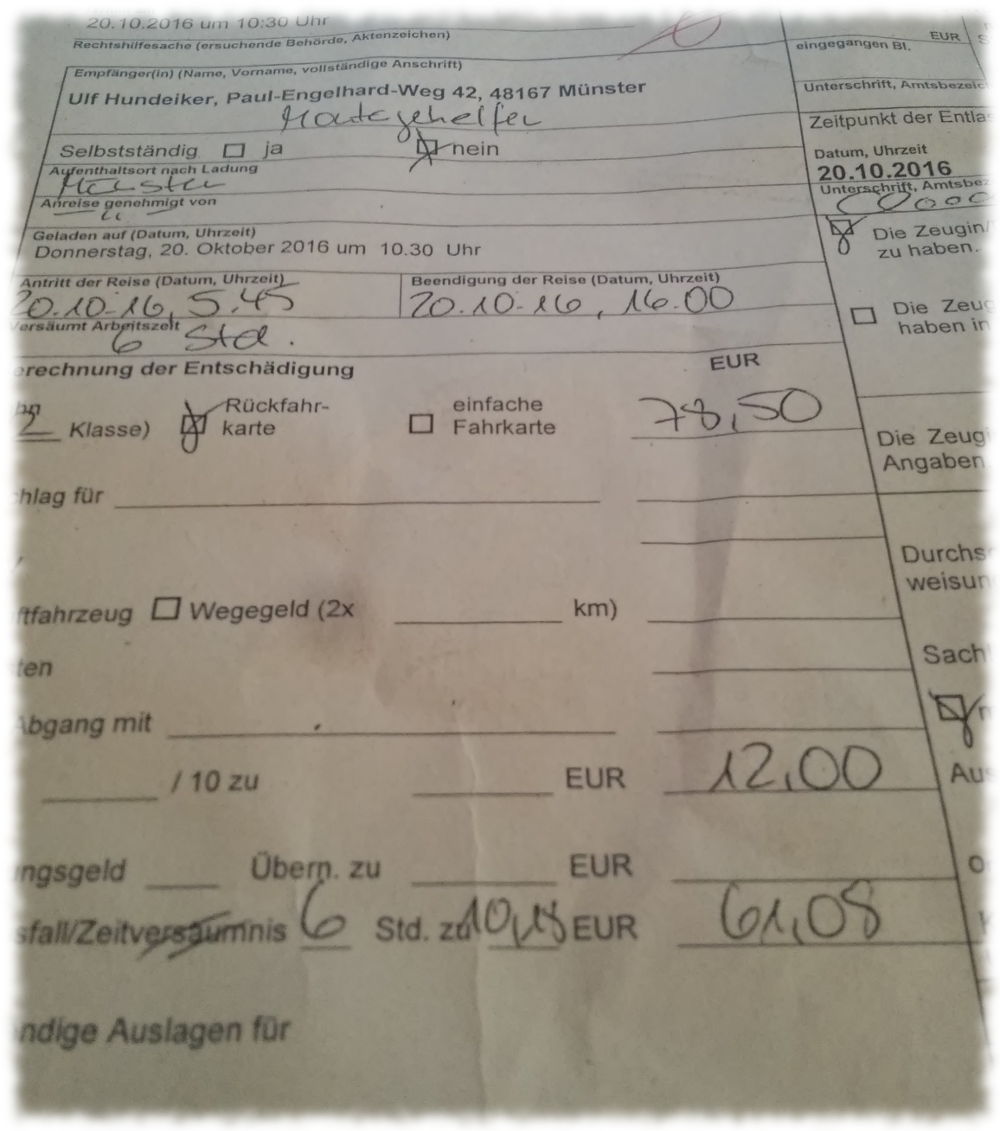 20.10.2016 um 10:30 Uhr
Rechtshilfesache (ersuchende Behörde, Aktenzeichen)
EUR
eingegangen Bl.
Empfänger(in) (Name, Vorname, vollständige Anschrift)
Ulf Hundeiker, Paul-Engelhard-Weg 42, 48167 Münster
Unterschrift, Amtsbezeic
Zeitpunkt der Entlas
Selbstständig ja nein
Datum, Uhrzeit
20.10.2016
Aufenthaltsort nach Ladung
Münster
Unterschrift, Amtsbez
Anreise genehmigt von
Die Zeugin/
zu haben.
Geladen auf (Datum, Uhrzeit)
Donnerstag, 20. Oktober 2016 um 10.30 Uhr
Antritt der Reise (Datum, Uhrzeit)
20.10.16, 5.45
Beendigung der Reise (Datum, Uhrzeit)
20.10.16, 16.00
Die Zeug
haben in
ersäumt Arbeitszeit
6 Std.
erechnung der Entschädigung
EUR
2 Klasse) Rückfahr-
karte
einfache
Fahrkarte
78,50
Die Zeugi
Angaben
hlag für
Durchs
weisun
ftfahrzeug Wegegeld (2x km)
ten
Sach
Abgang mit
/ 10 zu EUR 12,00
Aus
ngsgeld Übern. zu EUR
sfall/Zeitversäumnis 6 Std. zu 10,18 EUR 61,08
ndige Auslagen für